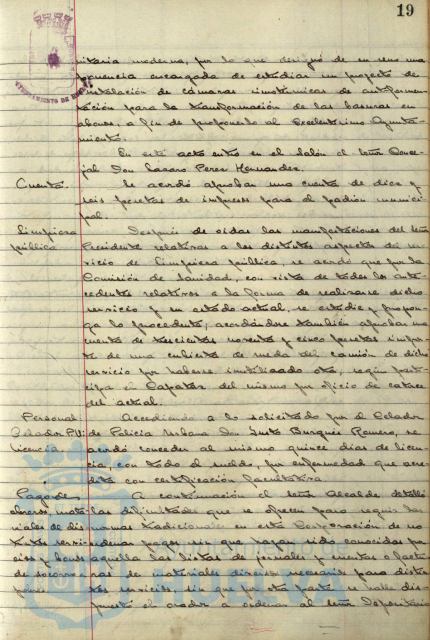 19
nitaria moderna, por lo que designó de su seno una
ponencia encargada de estudiar un proyecto de
instalación de cámaras zimotérmicas de autofermen-
tación para la transformación de las basuras en
abonos, a fin de proponerlo al Excelentísimo Ayunta-
miento.
En este acto entro en el salón el señor Conce-
jal Don Lazaro Perez Hernandez.
Cuenta. Se acordó aprobar una cuenta de diez y
seis pesetas de impresos para el padrón munici-
pal.
Limpieza Después de oidas las manifestaciones del señor
pública Presidente relativas a los distintos aspectos del ser-
vicio de limpieza pública, se acordó que por la
Comisión de Sanidad, con vista de todos los ante-
cedentes relativos a la forma de realizarse dicho
servicio y su estado actual, se estudie y propon-
ga lo procedente, acordándose también aprobar una
cuenta de trescientas noventa y cinco pesetas impor-
te de una cubierta de rueda del camión de dicho
servicio por haberse inutilizado otra, según parti-
cipa el Capataz del mismo por oficio de catorce
del actual.
Personal. Accediendo a lo solicitado por el Celador
Celador P.U. de Policia Urbana Don Justo Burgués Romero, se
Licencia acordó conceder al mismo quince dias de licen-
cia, con todo el sueldo, por enfermedad que acre-
dita con certificación facultativa.
Pago de A continuación el señor Alcalde detalló
obreros, mate- las dificultades que se ofrecen para seguir las
riales de dis- normas tradicionales en esta Corporación de no
tintos servi- ordenar pagos, sin que hayan sido conocidas por
cios y bonos aquella las listas de jornales y cuentas o factu-
de socorro a ras de materiales diversos necesarios para distin-
pobres tos servicios, sin que por otra parte se halle dis-
puesto el orador a ordenar al señor Depositario